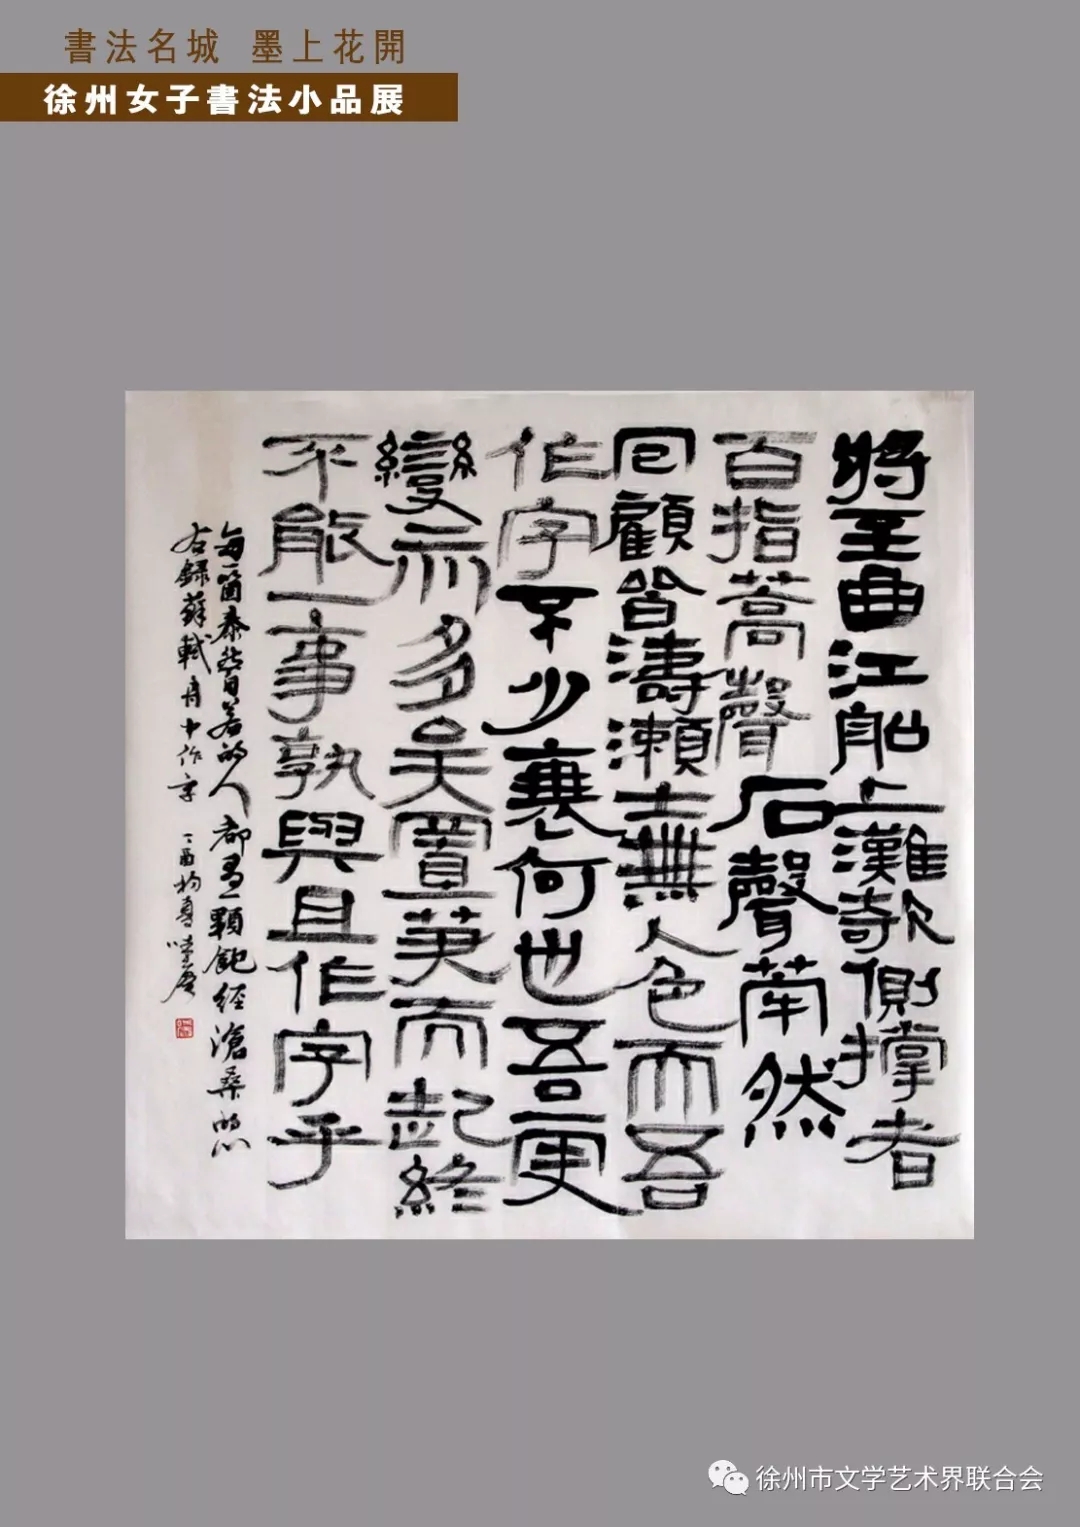 書法名城 墨上花開
徐州女子書法小品展
將至曲江船上灘欹側撐者
百指蒿聲石聲犖然
回顧皆濤瀨士無人色而吾
作字不少衰何也吾更
變亦多矣置筆而起終
不能一事孰與且作字乎
每一個泰然若的人都有一顆飽經滄桑的心
右錄蘇軾舟中作字 丁酉
徐州市文学艺术界联合会